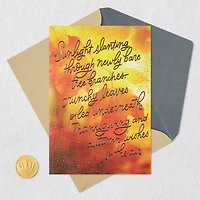 Sunlight slanting
through newly bare
tree branches
crunchy leaves
piled underneath
Thanksgiving and
autumn wishes